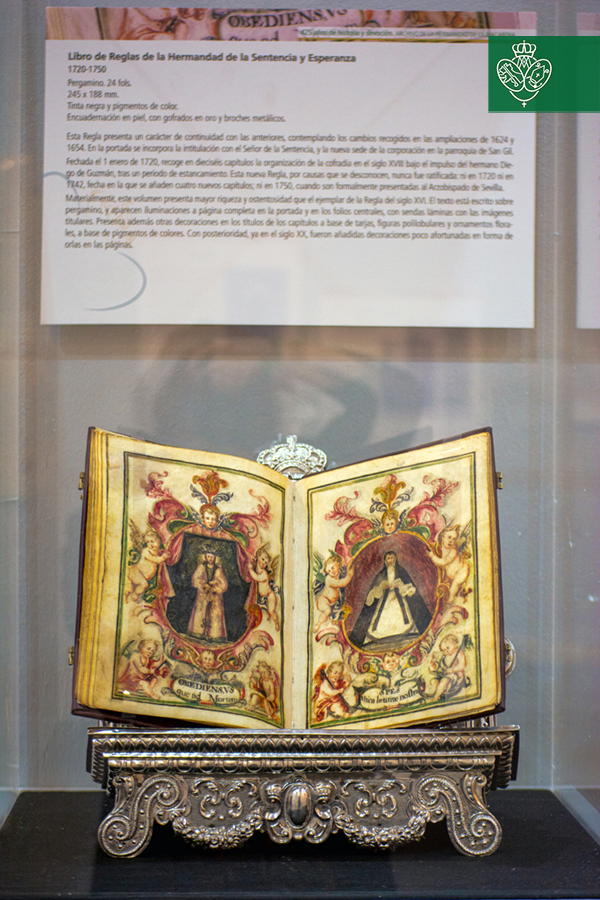 OBEDIENS.VS
425 años de historia y devoción. ARCHIVO DE LA HERMANDAD DE LA MACARENA
Libro de Reglas de la Hermandad de la Sentencia y Esperanza
1720-1750
Pergamino. 24 fols.
245 x 188 mm.
Tinta negra y pigmentos de color.
Encuadernación en piel, con gofrados en oro y broches metálicos.
Esta Regla presenta un carácter de continuidad con las anteriores, contemplando los cambios recogidos en las ampliaciones de 1624 y
1654. En la portada se incorpora la intitulación con el Señor de la Sentencia, y la nueva sede de la corporación en la parroquia de San Gil.
Fechada el 1 enero de 1720, recoge en dieciséis capítulos la organización de la cofradía en el siglo XVIII bajo el impulso del hermano Die-
go de Guzmán, tras un período de estancamiento. Esta nueva Regla, por causas que se desconocen, nunca fue ratificada: ni en 1720 ni en
1742, fecha en la que se añaden cuatro nuevos capítulos; ni en 1750, cuando son formalmente presentadas al Arzobispado de Sevilla.
Materialmente, este volumen presenta mayor riqueza y ostentosidad que el ejemplar de la Regla del siglo XVI. El texto está escrito sobre
pergamino, y aparecen iluminaciones a página completa en la portada y en los folios centrales, con sendas láminas con las imágenes
titulares. Presenta además otras decoraciones en los títulos de los capítulos a base de tarjas, figuras polilobulares y ornamentos flora-
les, a base de pigmentos de colores. Con posterioridad, ya en el siglo XX, fueron añadidas decoraciones poco afortunadas en forma de
orlas en las páginas.
OBEDIENS.VS
que ad Mortem
SPES